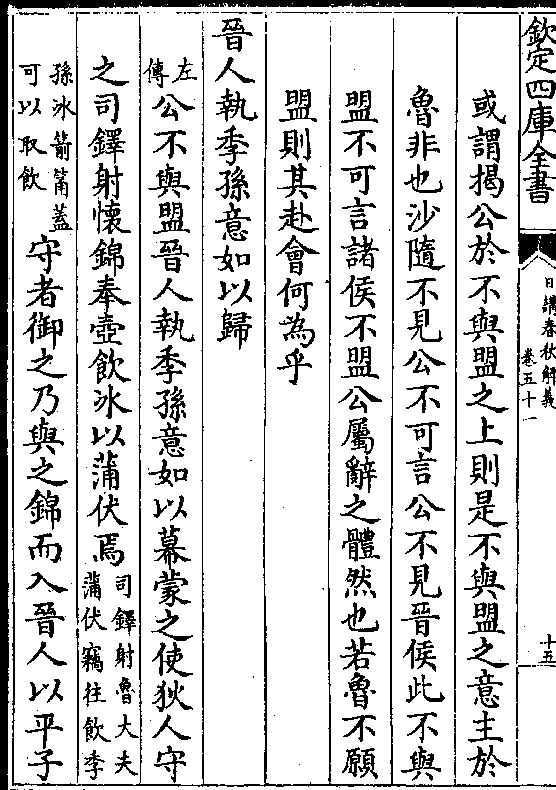 欽定四庫全書
日講春秋解義
卷五十一
十五
或謂揭公於不與盟之上則是不與盟之意主於
魯非也沙隨不見公不可言公不見晉侯此不與
盟不可言諸侯不盟公屬辭之體然也若魯不願
盟則其赴會何為乎
晉人執季孫意如以歸
左傳公不與盟晉人執季孫意如以幕蒙之使狄人守
之司鐸射懷錦奉壺飲冰以蒲伏焉司鐸射魯大夫蒲伏竊往飲季
孫冰箭筩蓋可以取飲守者御之乃與之錦而入晉人以平子